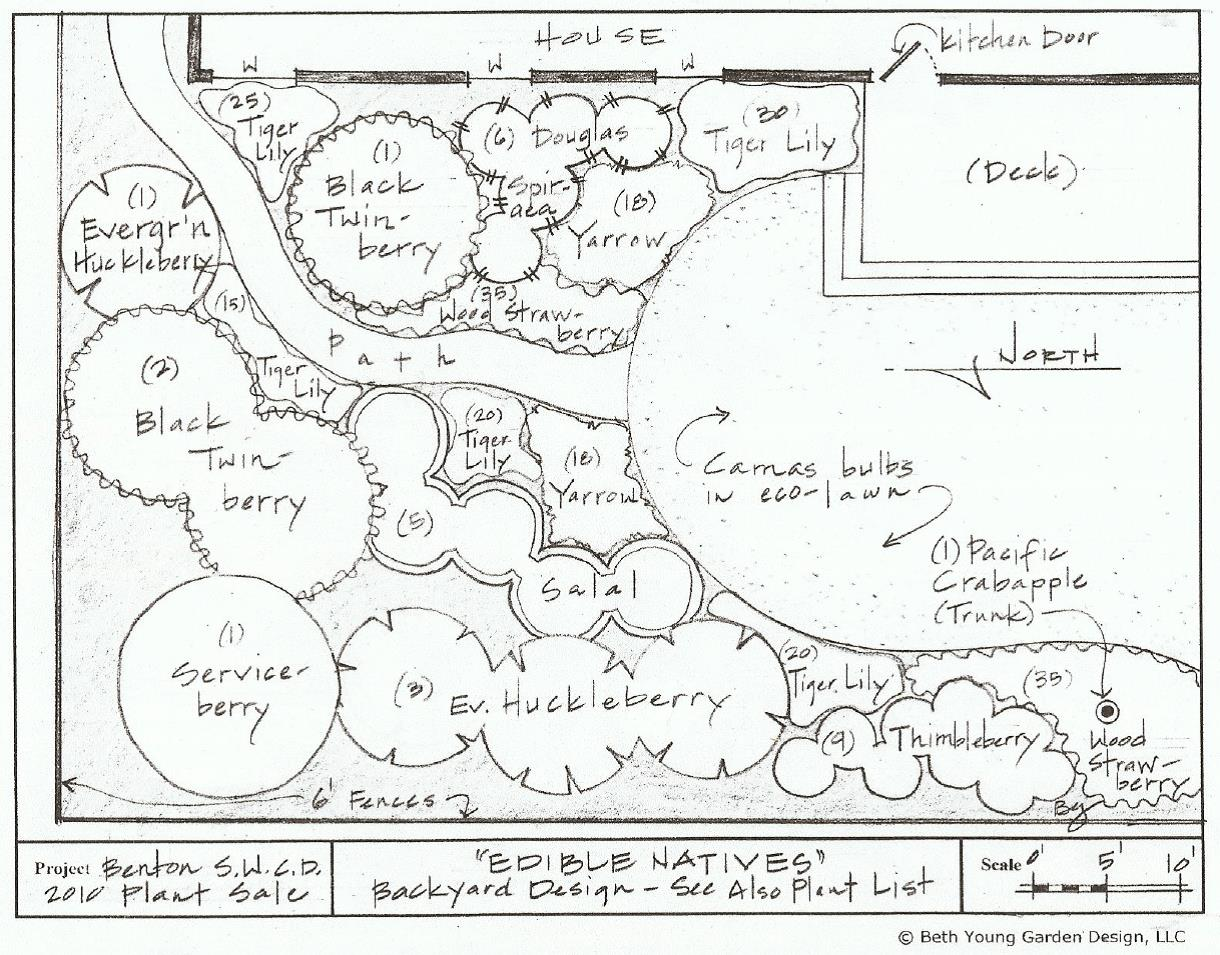 HOUSE
Kitchen Door
W
W
W
(25)
Tiger
Lily
(1)
Black
Twin-
berry
(6) Douglas
Spir-
aea
(30)
Tiger Lily
(Deck)
(18)
Yarrow
(1)
Evergr'n
Huckleberry
(15)
Tiger
Lily
(35)
Wood Straw-
berry
Path
NORTH
(2)
Black
Twin-
berry
(20)
Tiger
Lily
(18)
Yarrow
Camas bulbs
in eco-lawn
(5)
Salal
(1) Pacific
Crabapple
(Trunk)
(1)
Service-
berry
(3) Ev. Huckleberry
(20)
Tiger Lily
(35)
Wood
Straw-
berry
(9) Thimbleberry
By
6' Fences
Project Benton S.W.C.D.
2010 Plant Sale
"EDIBLE NATIVES"
Backyard Design - See Also Plant List
Scale 0' 5' 10'
© Beth Young Garden Design, LLC